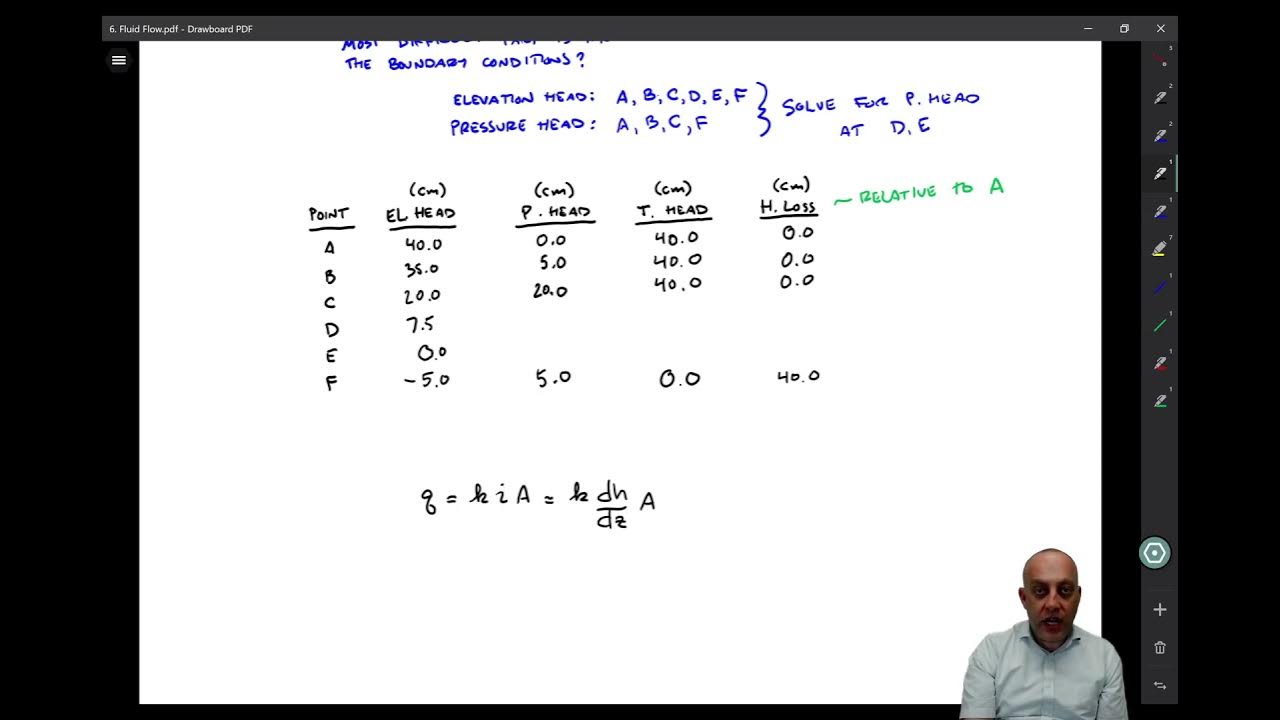 6. Fluid Flow.pdf - Drawboard PDF
MOST
THE BOUNDARY CONDITIONS?
ELEVATION HEAD: A, B, C, D, E, F
PRESSURE HEAD: A, B, C, F
SOLVE FOR P. HEAD
AT D, E
(cm) (cm) (cm) (cm)
POINT EL HEAD P. HEAD T. HEAD H. LOSS ~ RELATIVE TO A
A 40.0 0.0 40.0 0.0
B 35.0 5.0 40.0 0.0
C 20.0 20.0 40.0 0.0
D 7.5
E 0.0
F -5.0 5.0 0.0 40.0
q = k i A = k dh/dz A